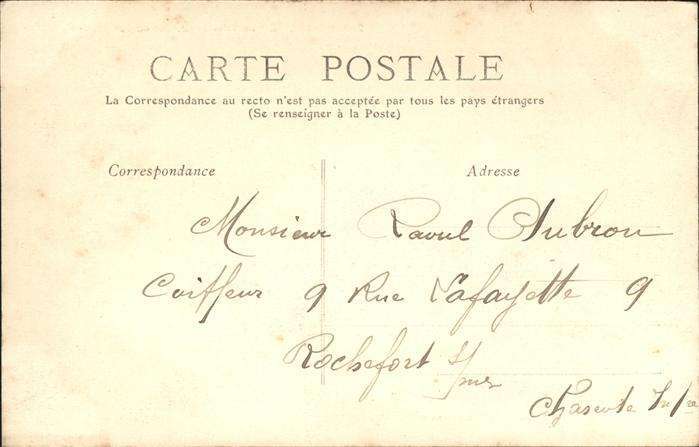 CARTE POSTALE
La Correspondance au recto n'est pas acceptée par tous les pays étrangers
(Se renseigner à la Poste)
Correspondance
Adresse
Monsieur Raoul Aubron
Coiffeur 9 Rue Lafayette 9
Rochefort s/mer
Charente Infre